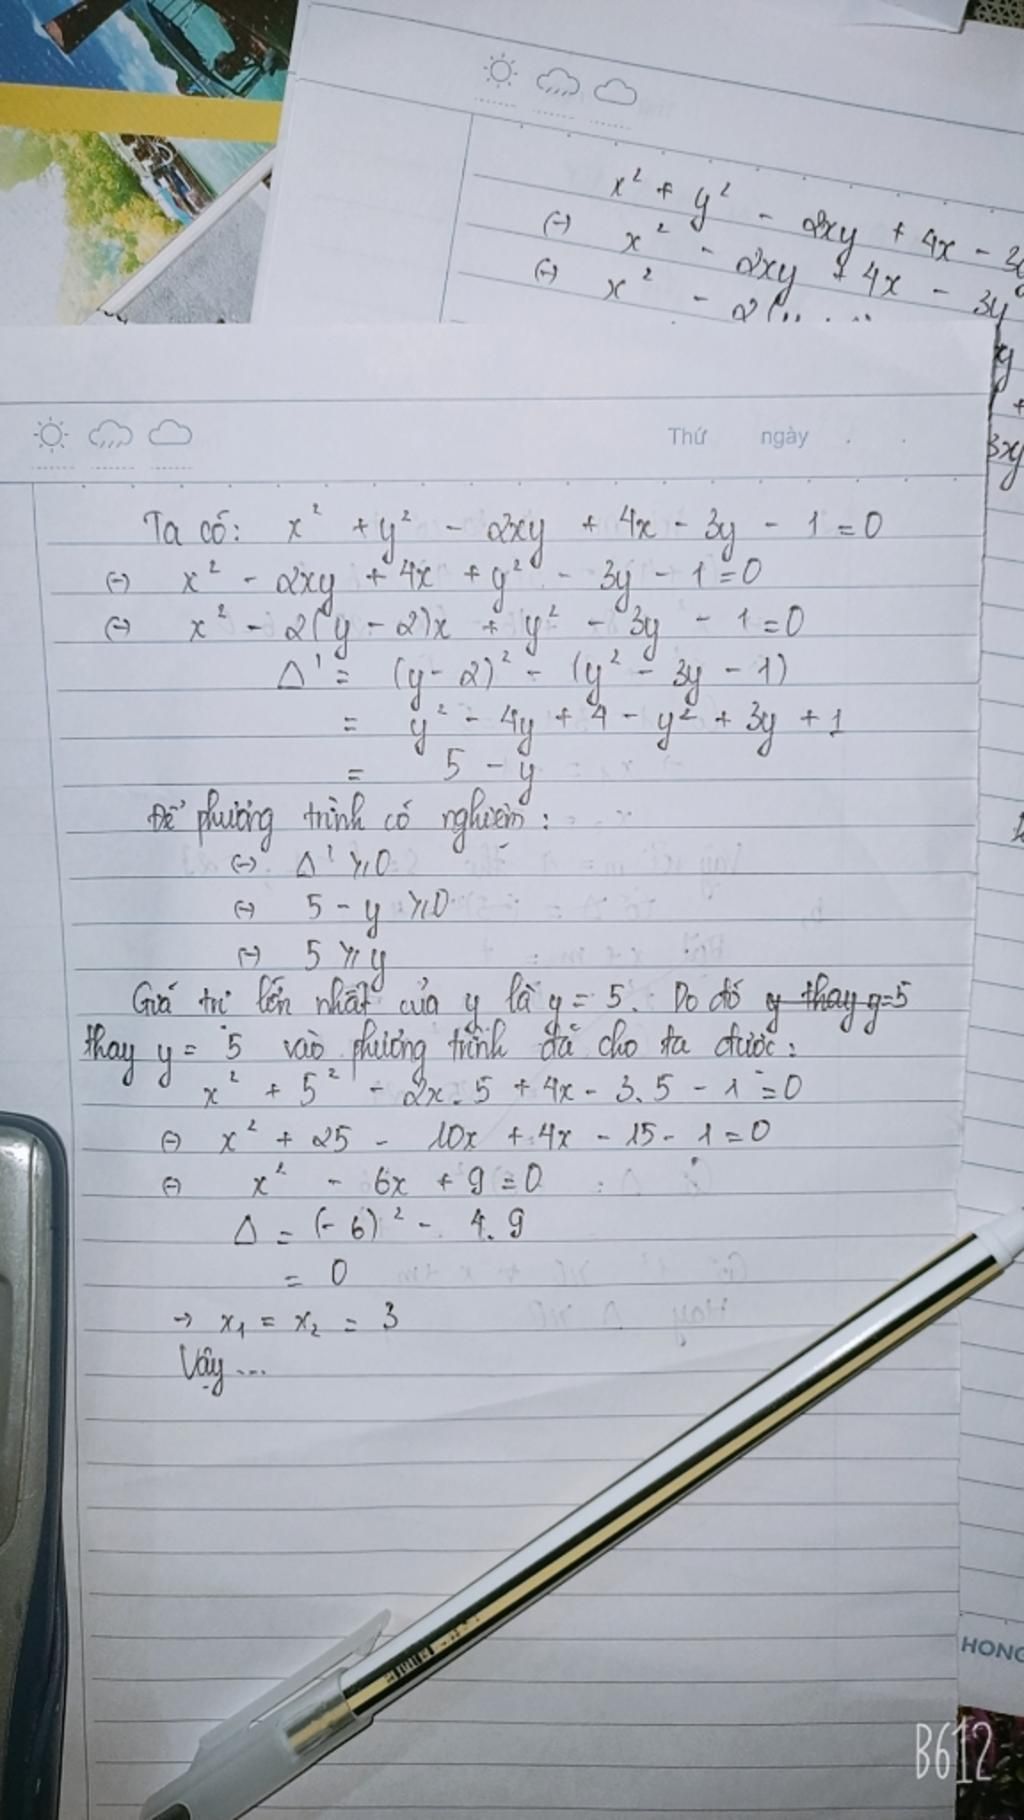 x² + y² - 2xy + 4x - 3
(-) x² - 2xy + 4x - 3y
(-) x² - 2
xy
+
3xy
Thứ ngày . .
Ta có: x² + y² - 2xy + 4x - 3y - 1 = 0
(-) x² - 2xy + 4x + y² - 3y - 1 = 0
(-) x² - 2(y - 2)x + y² - 3y - 1 = 0
Δ' = (y - 2)² - (y² - 3y - 1)
= y² - 4y + 4 - y² + 3y + 1
= 5 - y
Để phương trình có nghiệm :
(-) Δ' ⩾ 0
(-) 5 - y ⩾ 0
(-) 5 ⩾ y
Giá trị lớn nhất của y là y = 5. Do đó y thay y=5
thay y = 5 vào phương trình đã cho ta được :
x² + 5² - 2x.5 + 4x - 3.5 - 1 = 0
(-) x² + 25 - 10x + 4x - 15 - 1 = 0
(-) x² - 6x + 9 = 0
Δ = (-6)² - 4.9
= 0
→ x₁ = x₂ = 3
Vậy ...
HONG
B612